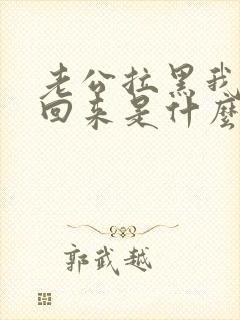 老公拉黑我
回来是什麼
郭武越